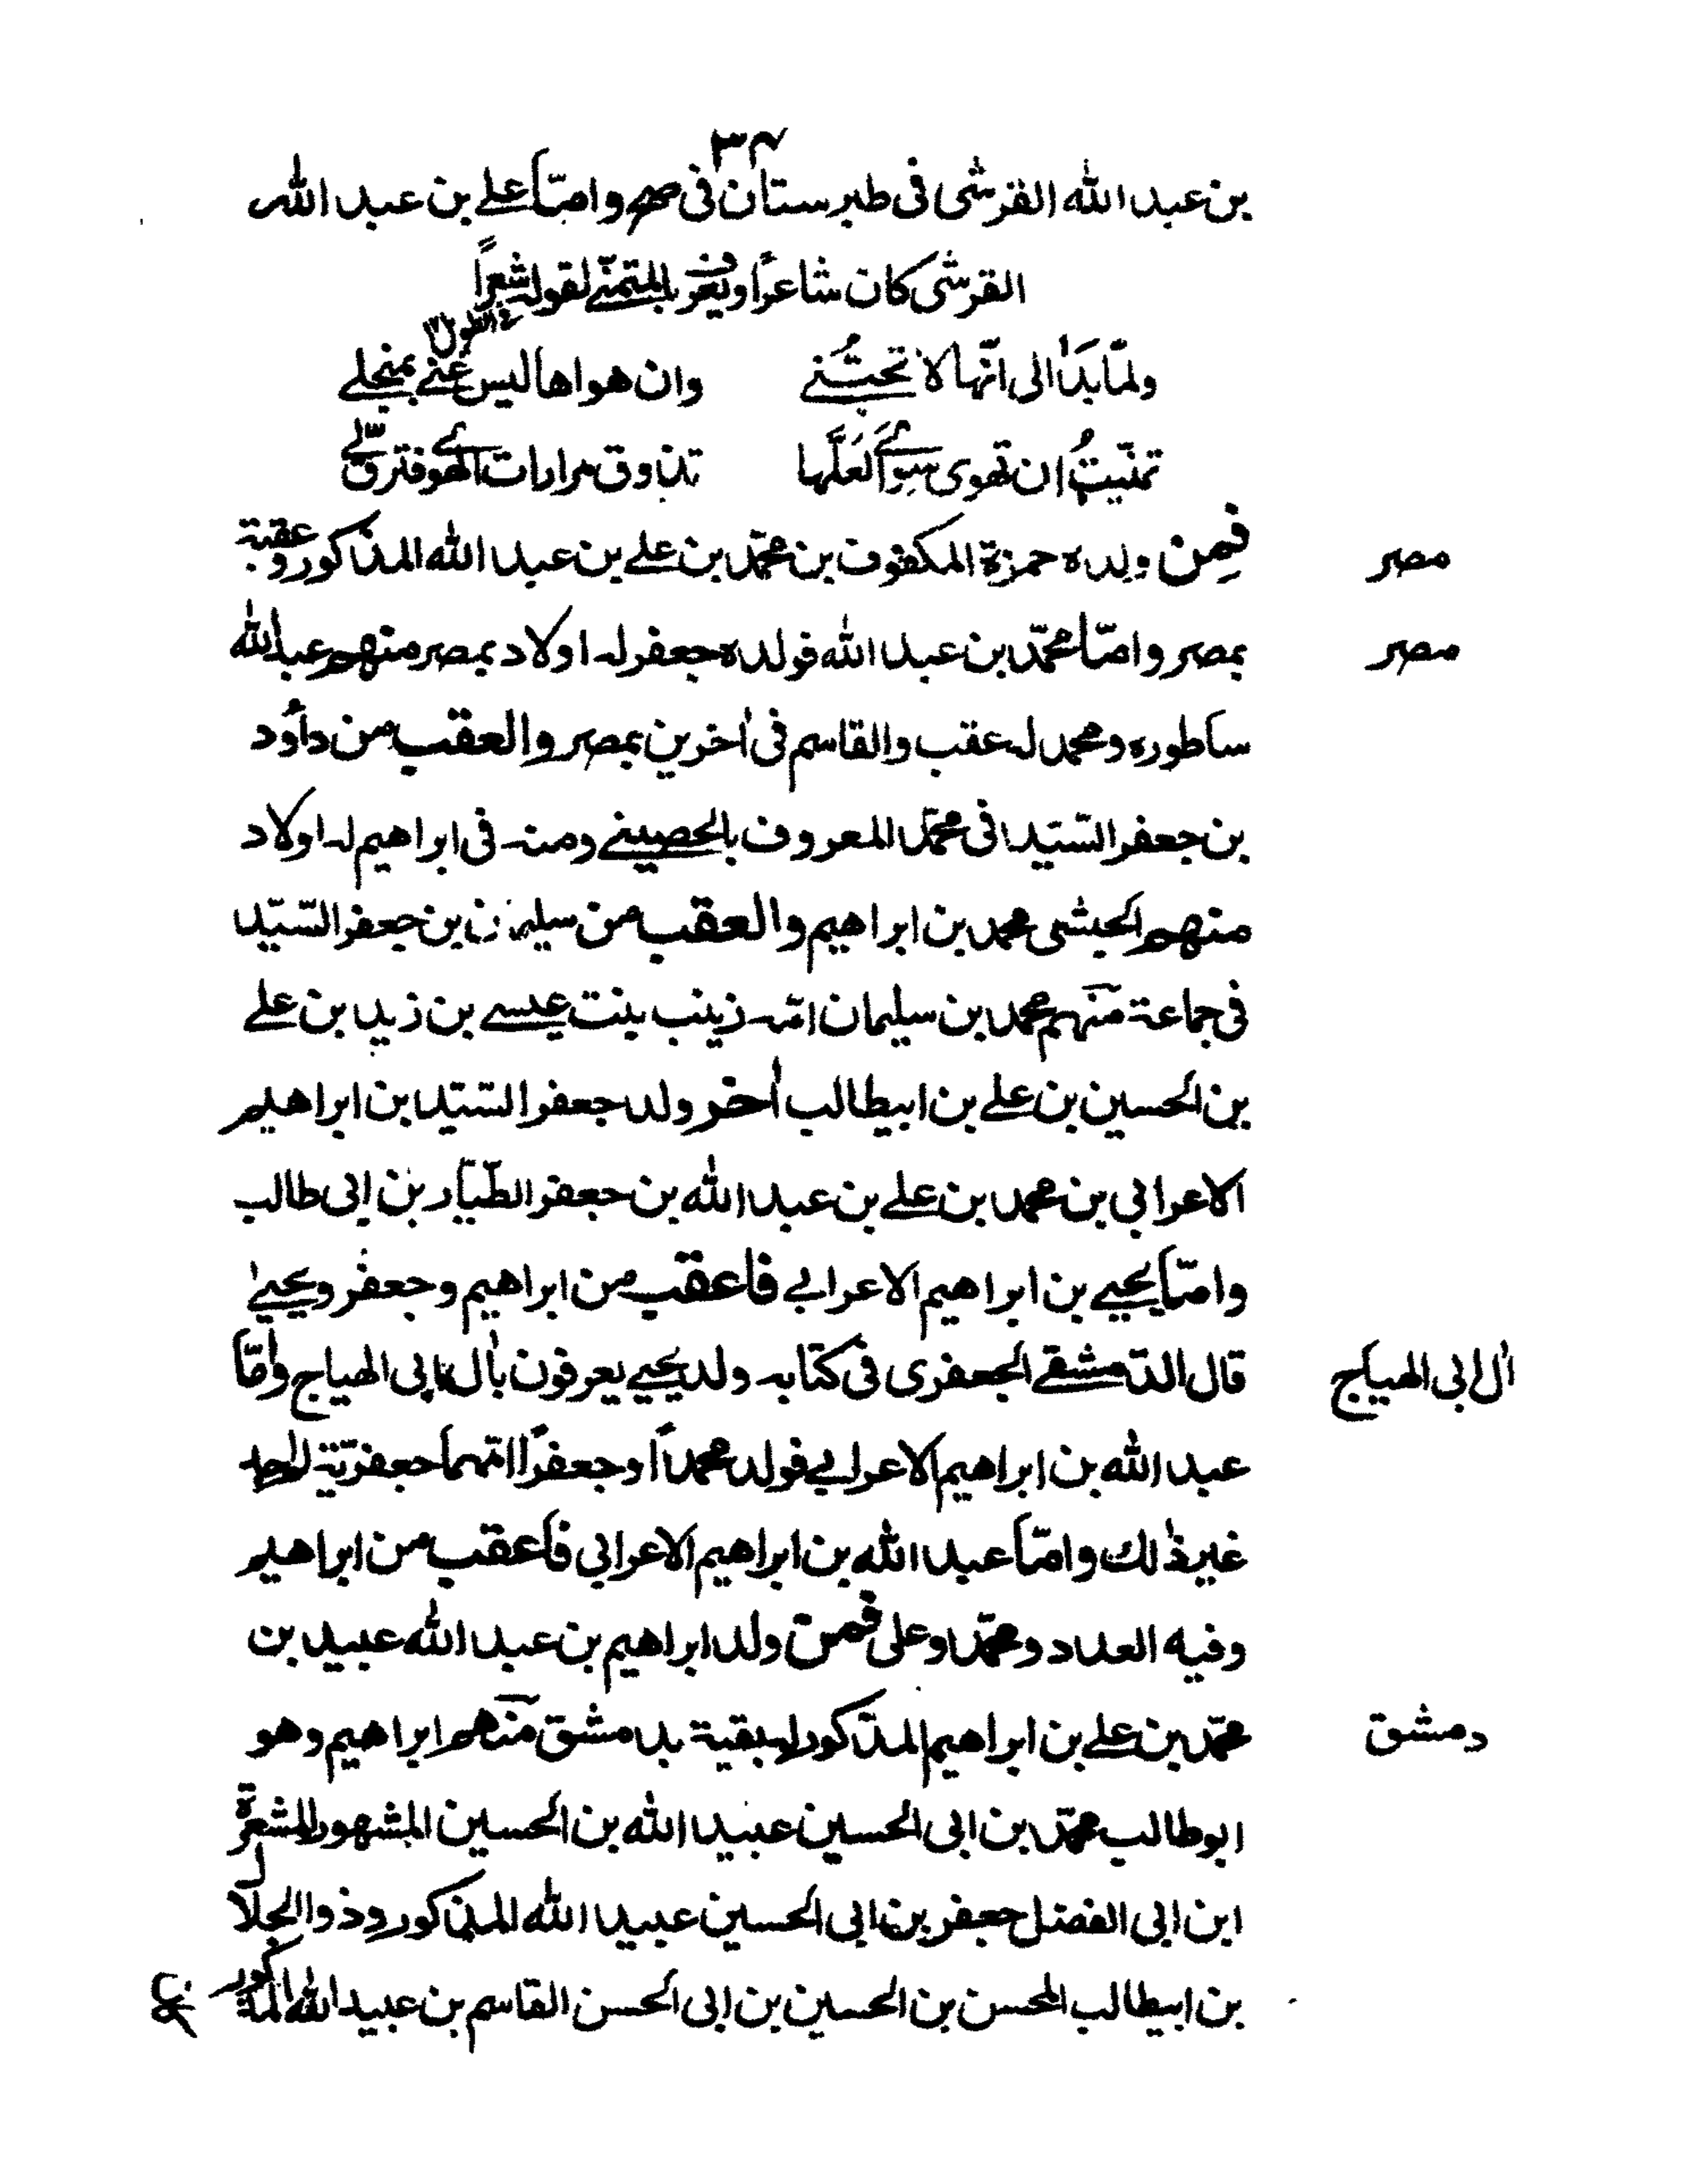 ٣٧
بن عبد الله القرشی فی طبرستان فی صح واما علے بن عبد الله
القرشی کان شاعراً ویعرف بالمتمنّے لقوله شعراً
ولمّا بدَا لی انّها لا تحبُّنے وان هواها لیس عنّے بمنجلے
تمنّیتُ ان تهوی سوائے لعَلَّها تذوق مرارات الهوے فترقّ لے
فمِن ولده حمزة المکفوف بن محمّد بن علے بن عبد الله المذکور وعقبة
مصر
بمصر وامّا محمّد بن عبد الله فولده جعفر له اولاد بمصر منهم عبد الله
مصر
ساطوره ومحمد له عقب والقاسم فی اٰخرین بمصر والعقب من داؤد
بن جعفر السّیّد فی محمّد المعروف بالحصینے ومنه فی ابراهیم له اولاد
منهم الحبشی محمد بن ابراهیم والعقب من سلیمان بن جعفر السّیّد
فی جماعة منهم محمد بن سلیمان امّه زینب بنت عیسے بن زید بن علے
بن الحسین بن علے بن ابیطالب اٰخر ولد جعفر السّیّد بن ابراهیم
الاعرابی بن محمد بن علے بن عبد الله بن جعفر الطّیّار بن ابی طالب
وامّا یحیے بن ابراهیم الاعرابے فاعقب من ابراهیم وجعفر ویحییٰ
قال الدّمشقے الجعفری فی کتابه ولد یحیے یعرفون باٰل ابی الهیاج وامّا
اٰل ابی الهیاج
عبد الله بن ابراهیم الاعرابے فولد محمداً وجعفراً امّهما جعفریّة
غیر ذٰلك وامّا عبد الله بن ابراهیم الاعرابی فاعقب من ابراهیم
وفیه العدد ومحمّد وعلی فمن ولد ابراهیم بن عبد الله عبید بن
محمّد بن علے بن ابراهیم المذکور له بقیة بدمشق منهم ابراهیم وهو
دمشق
ابو طالب محمّد بن ابی الحسین عبید الله بن الحسین المشهور
ابن ابی الفضل جعفر بن ابی الحسین عبید الله المذکور وذو الجلال
بن ابیطالب المحسن بن الحسین بن ابی الحسن القاسم بن عبید الله المذکور